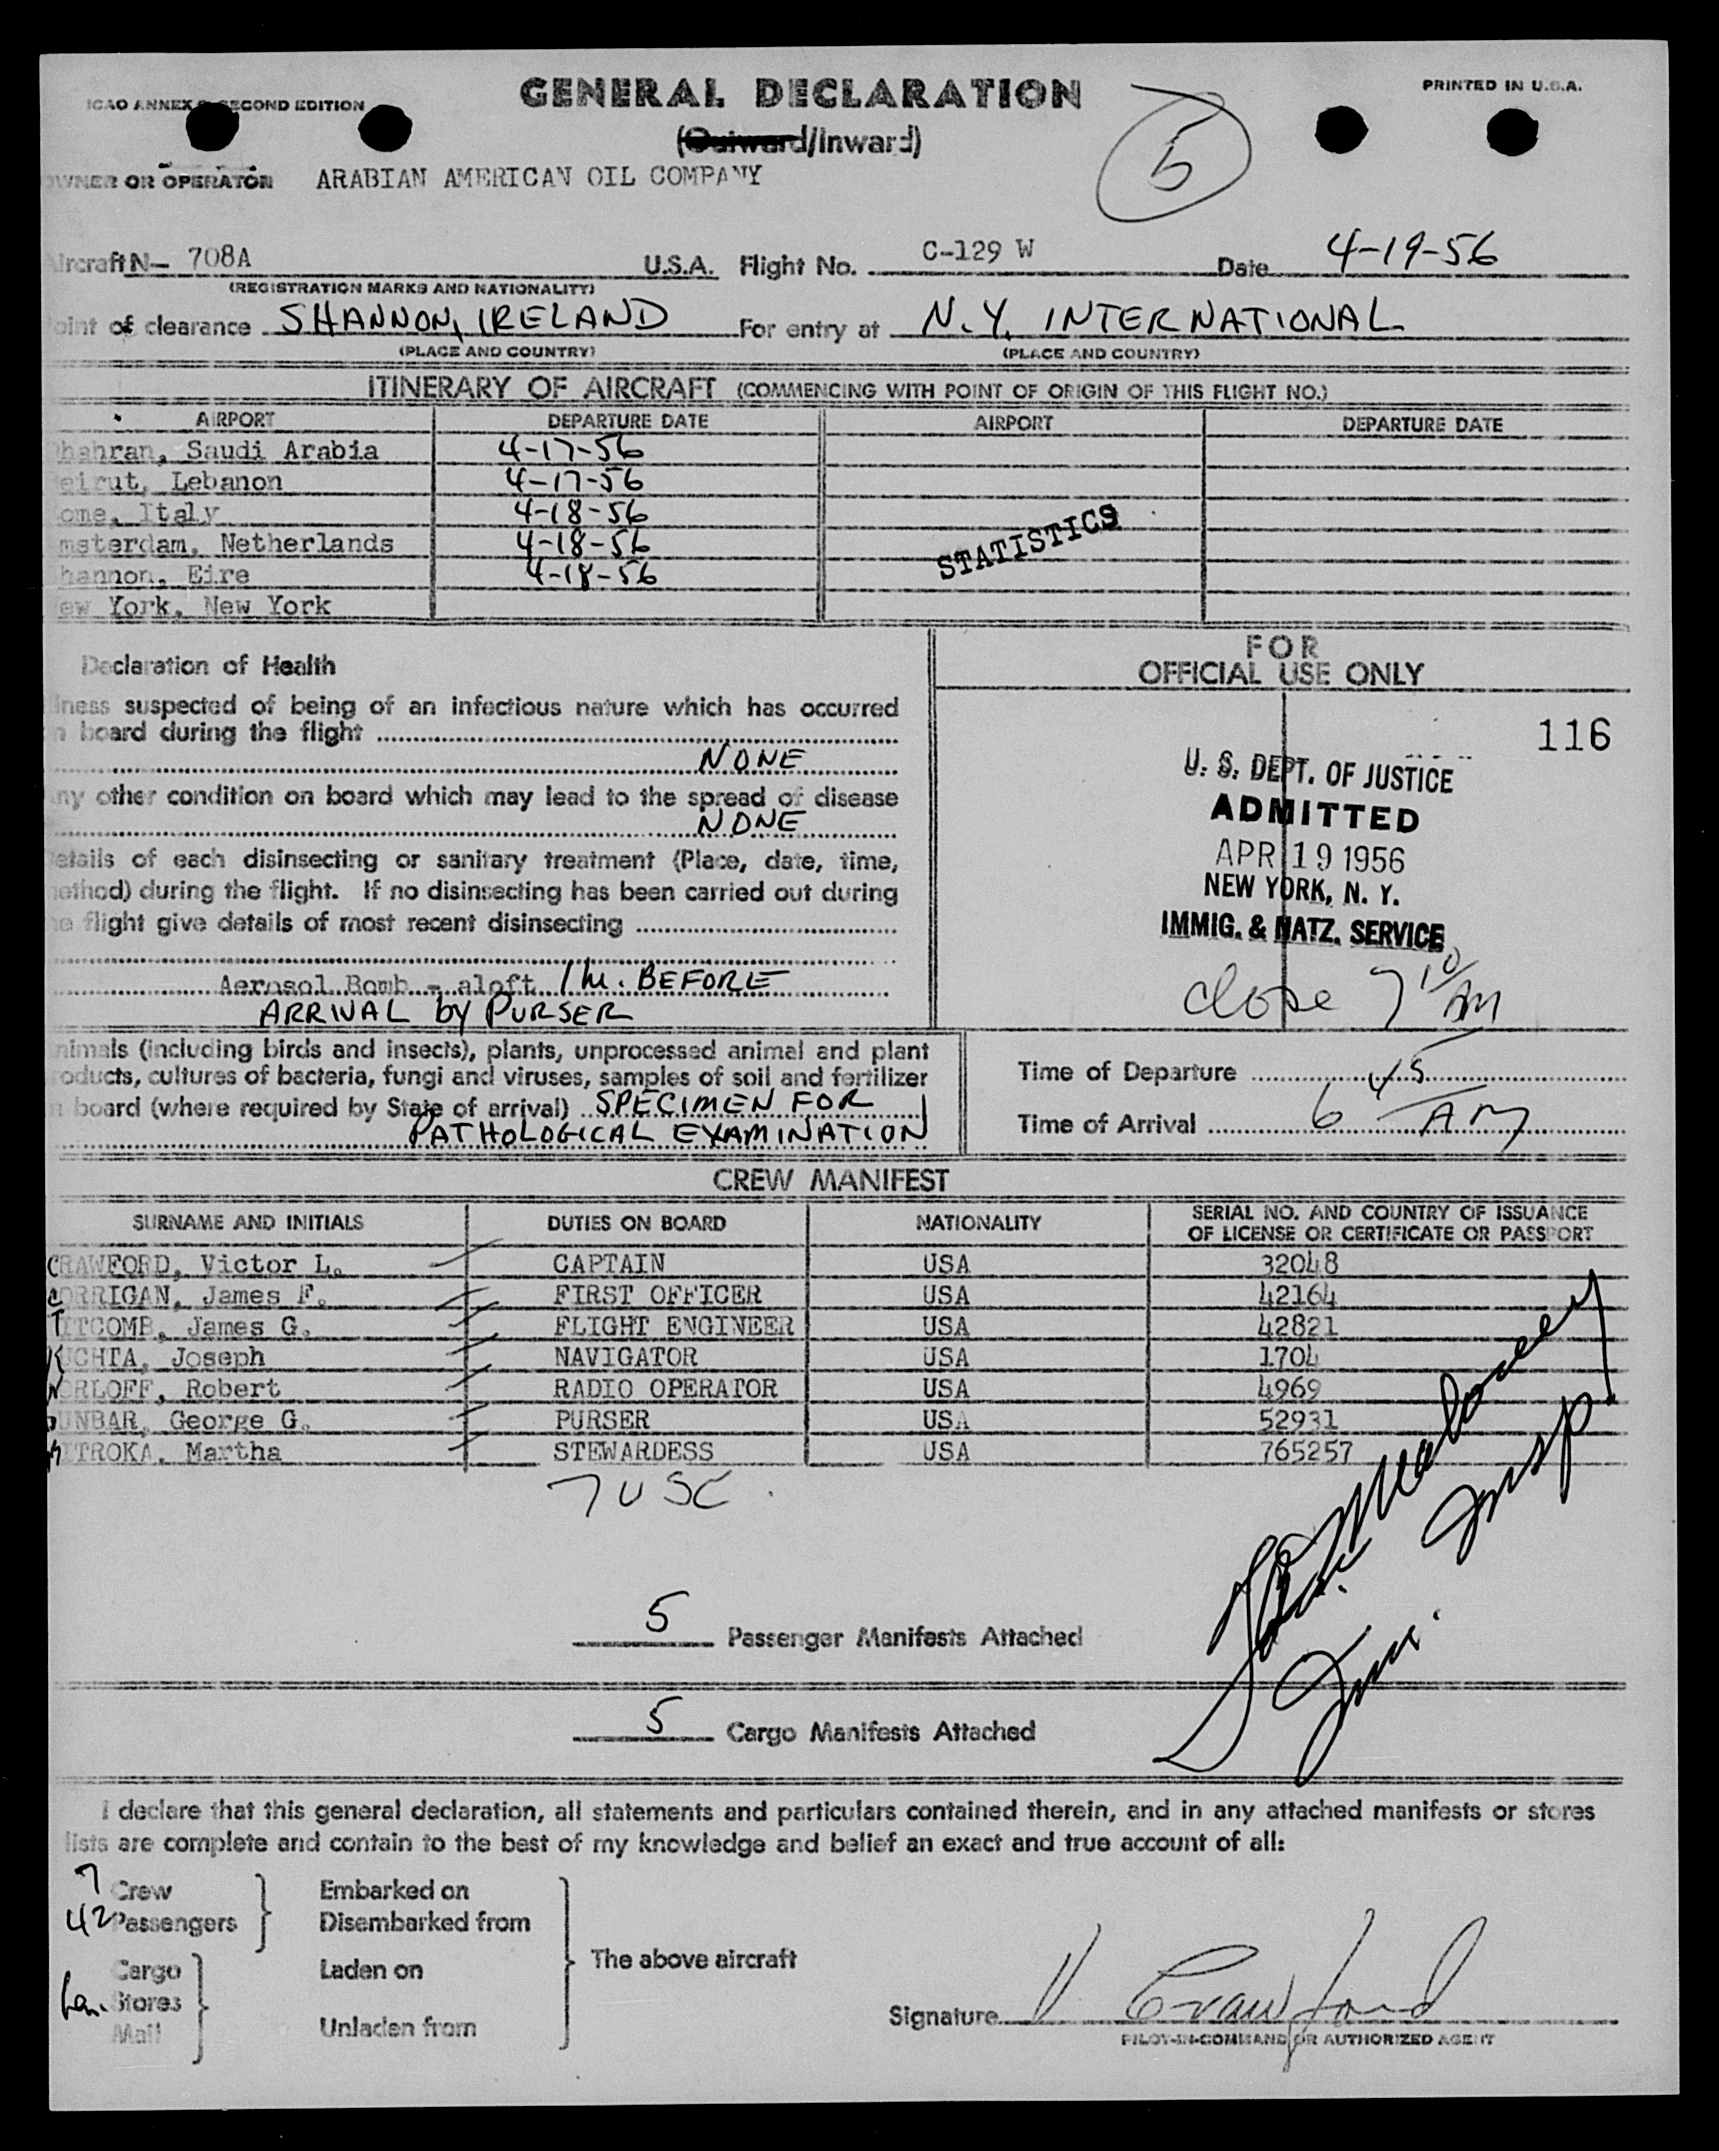 ICAO ANNEX 9 SECOND EDITION
GENERAL DECLARATION
PRINTED IN U.S.A.
(Outward/Inward)
5
OWNER OR OPERATOR ARABIAN AMERICAN OIL COMPANY
Aircraft N- 708A U.S.A. Flight No. C-129 W Date 4-19-56
(REGISTRATION MARKS AND NATIONALITY)
Point of clearance SHANNON, IRELAND For entry at N.Y. INTERNATIONAL
(PLACE AND COUNTRY) (PLACE AND COUNTRY)
ITINERARY OF AIRCRAFT (COMMENCING WITH POINT OF ORIGIN OF THIS FLIGHT NO.)
AIRPORT DEPARTURE DATE AIRPORT DEPARTURE DATE
Dhahran, Saudi Arabia 4-17-56
Beirut, Lebanon 4-17-56
Rome, Italy 4-18-56
Amsterdam, Netherlands 4-18-56
Shannon, Eire 4-18-56
New York, New York
STATISTICS
Declaration of Health
Illness suspected of being of an infectious nature which has occurred
on board during the flight
NONE
Any other condition on board which may lead to the spread of disease
NONE
Details of each disinsecting or sanitary treatment (Place, date, time,
method) during the flight. If no disinsecting has been carried out during
the flight give details of most recent disinsecting
Aerosol Bomb - aloft 1 hr. BEFORE
ARRIVAL by PURSER
FOR
OFFICIAL USE ONLY
116
U. S. DEPT. OF JUSTICE
ADMITTED
APR 19 1956
NEW YORK, N. Y.
IMMIG. & NATZ. SERVICE
close 7 10/AM
Animals (including birds and insects), plants, unprocessed animal and plant
products, cultures of bacteria, fungi and viruses, samples of soil and fertilizer
on board (where required by State of arrival) SPECIMEN FOR
PATHOLOGICAL EXAMINATION
Time of Departure
Time of Arrival 6 45 AM
CREW MANIFEST
SURNAME AND INITIALS DUTIES ON BOARD NATIONALITY SERIAL NO. AND COUNTRY OF ISSUANCE
OF LICENSE OR CERTIFICATE OR PASSPORT
CRAWFORD, Victor L. CAPTAIN USA 32048
CORRIGAN, James F. FIRST OFFICER USA 42164
TITCOMB, James G. FLIGHT ENGINEER USA 42821
KUCHTA, Joseph NAVIGATOR USA 1704
WORLOFF, Robert RADIO OPERATOR USA 4969
DUNBAR, George G. PURSER USA 52931
MITROKA, Martha STEWARDESS USA 765257
7 USC
Maloney
Imm. Insp.
5 Passenger Manifests Attached
5 Cargo Manifests Attached
I declare that this general declaration, all statements and particulars contained therein, and in any attached manifests or stores
lists are complete and contain to the best of my knowledge and belief an exact and true account of all:
7 Crew
42 Passengers
Embarked on
Disembarked from
Cargo
Stores
Mail
Laden on
Unladen from
The above aircraft
Signature V Crawford
PILOT-IN-COMMAND OR AUTHORIZED AGENT